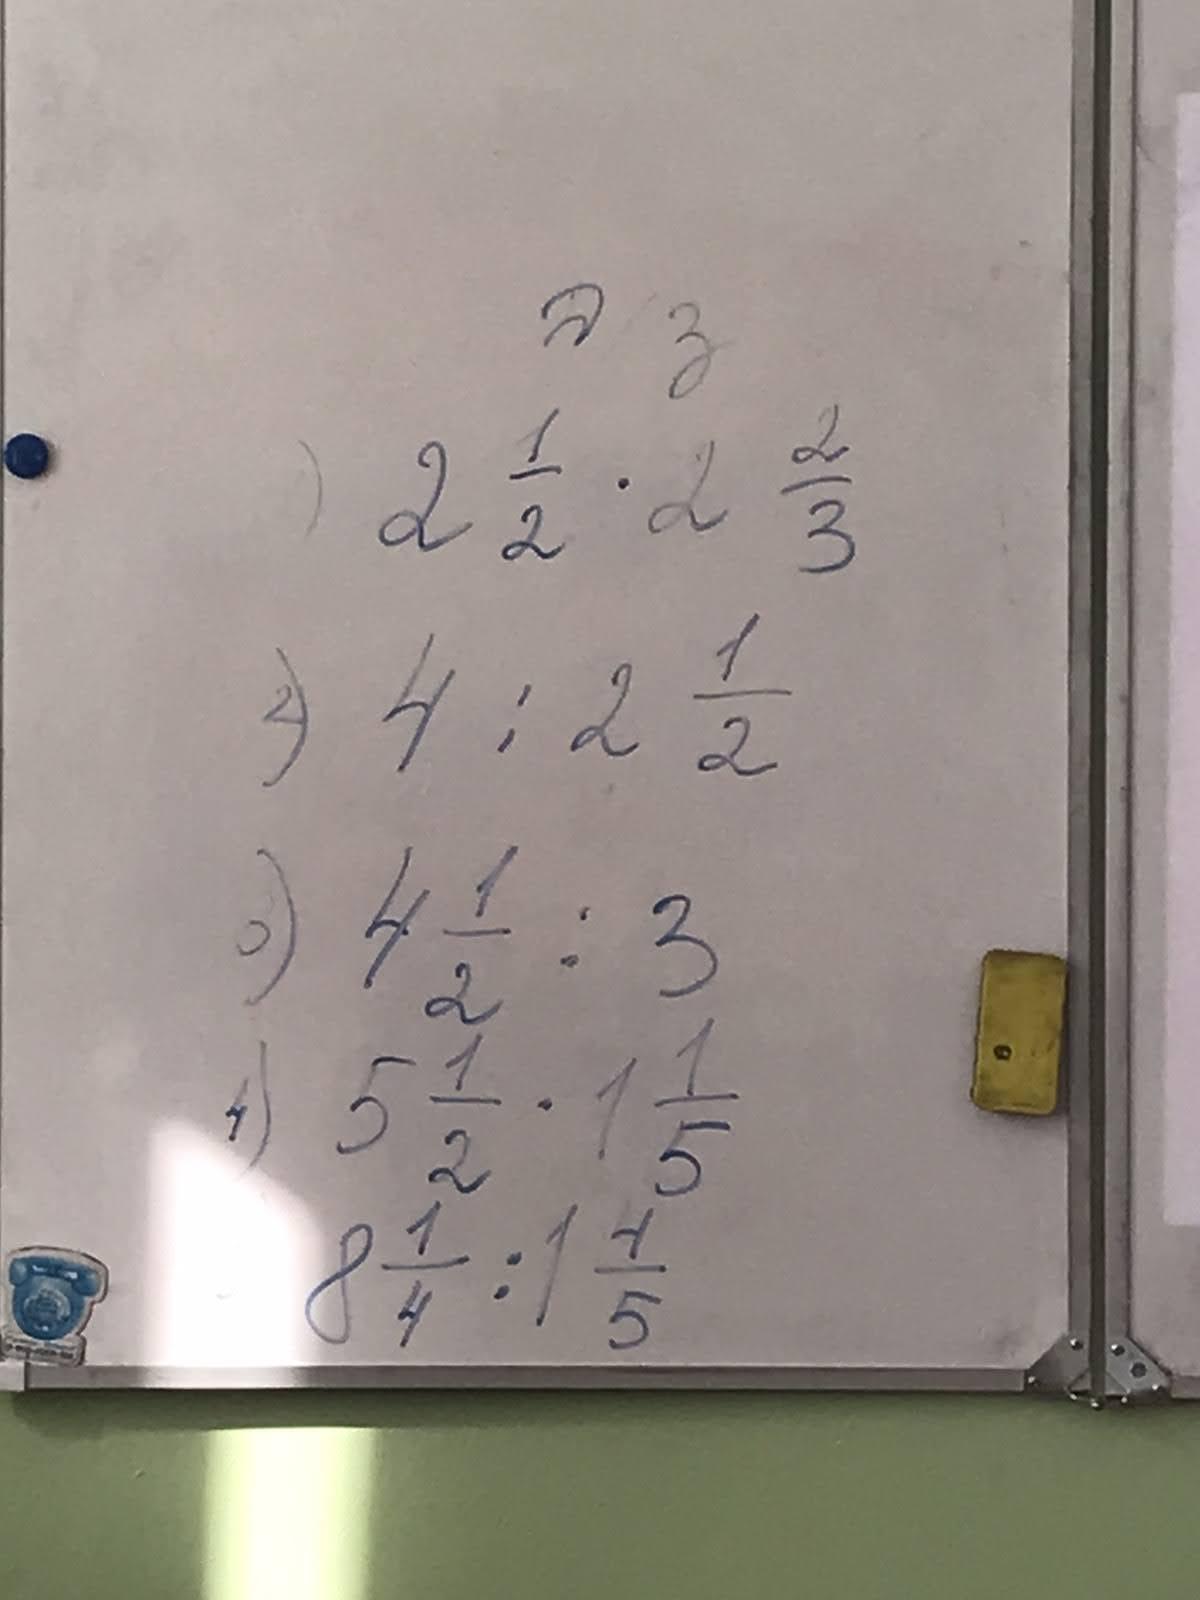 д/з
) 2 1/2 · 2 2/3
2) 4 : 2 1/2
3) 4 1/2 : 3
4) 5 1/2 · 1 1/5
8 1/4 : 1 4/5